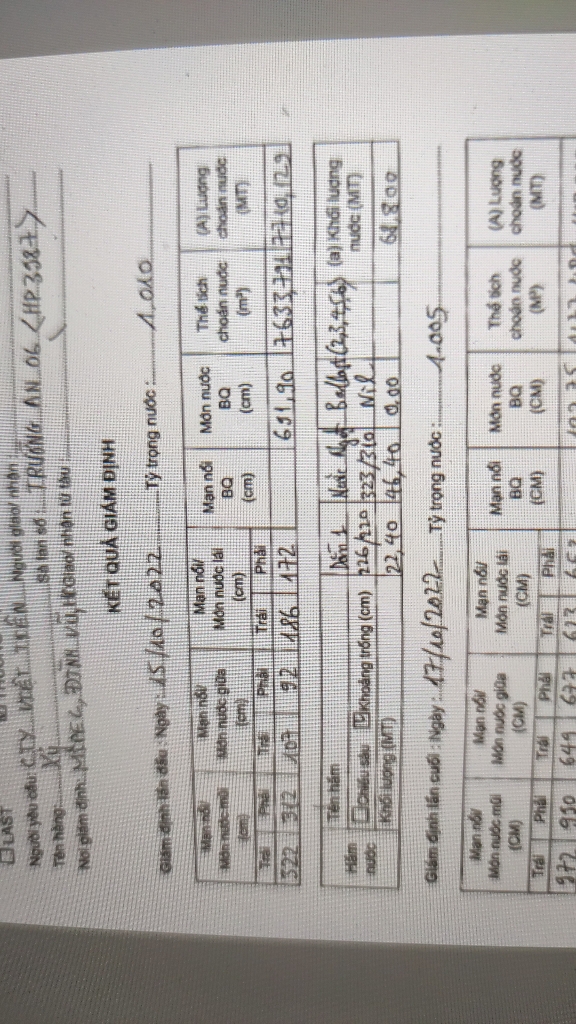 □ LAST
Người yêu cầu: CTY VIỆT TIẾN Người giao/ nhận :
Tên hàng: Xỉ Sà lan số : TRƯỜNG AN 06 (HP.3987)
Nơi giám định: MIPEC, ĐÌNH VŨ, HP Giao/ nhận từ tàu :
KẾT QUẢ GIÁM ĐỊNH
Giám định lần đầu : Ngày : 15/10/2022 Tỷ trọng nước : 1,010
Mạn nổi/ Món nước mũi (cm) Mạn nổi/ Món nước giữa (cm) Mạn nổi/ Món nước lái (cm) Mạn nổi BQ (cm) Món nước BQ (cm) Thể tích choán nước (m³) (A) Lượng choán nước (MT)
Trái Phải Trái Phải Trái Phải
322 312 107 92 186 172 691,90 7633,791 7710,129
Hầm nước Tên hầm Dằn 1 Nước Ngọt Ballast (2,3,4,5,6) (a) Khối lượng nước (MT)
□ Chiều sâu ☑ Khoảng trống (cm) 226/220 323/310 Nil
Khối lượng (MT) 22,40 46,40 0,00 68,800
Giám định lần cuối : Ngày : 17/10/2022 Tỷ trọng nước : 1.005
Mạn nổi/ Món nước mũi (CM) Mạn nổi/ Món nước giữa (CM) Mạn nổi/ Món nước lái (CM) Mạn nổi BQ (CM) Món nước BQ (CM) Thể tích choán nước (M³) (A) Lượng choán nước (MT)
Trái Phải Trái Phải Trái Phải
972 950 644 677 673